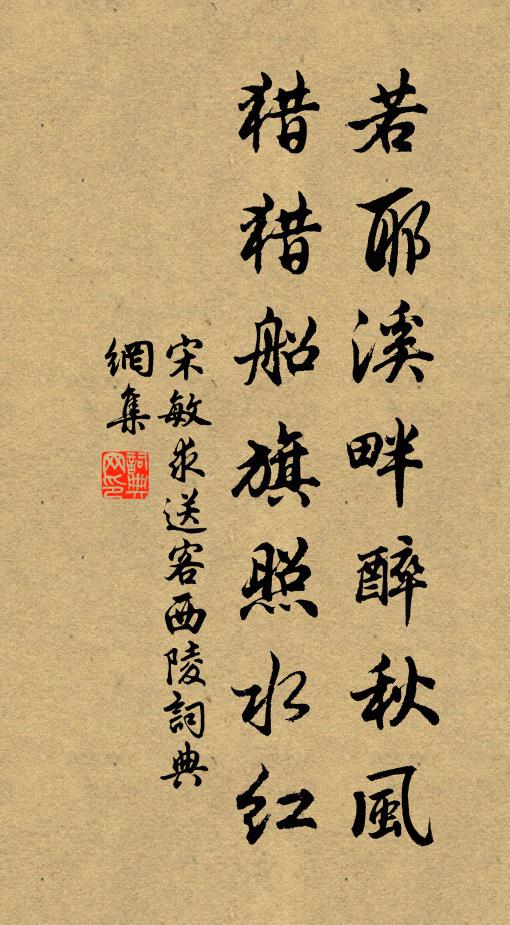 若耶溪畔醉秋風
猎猎船旗照水红
宋敏求送客西陵詞典
網集
詞典
网印